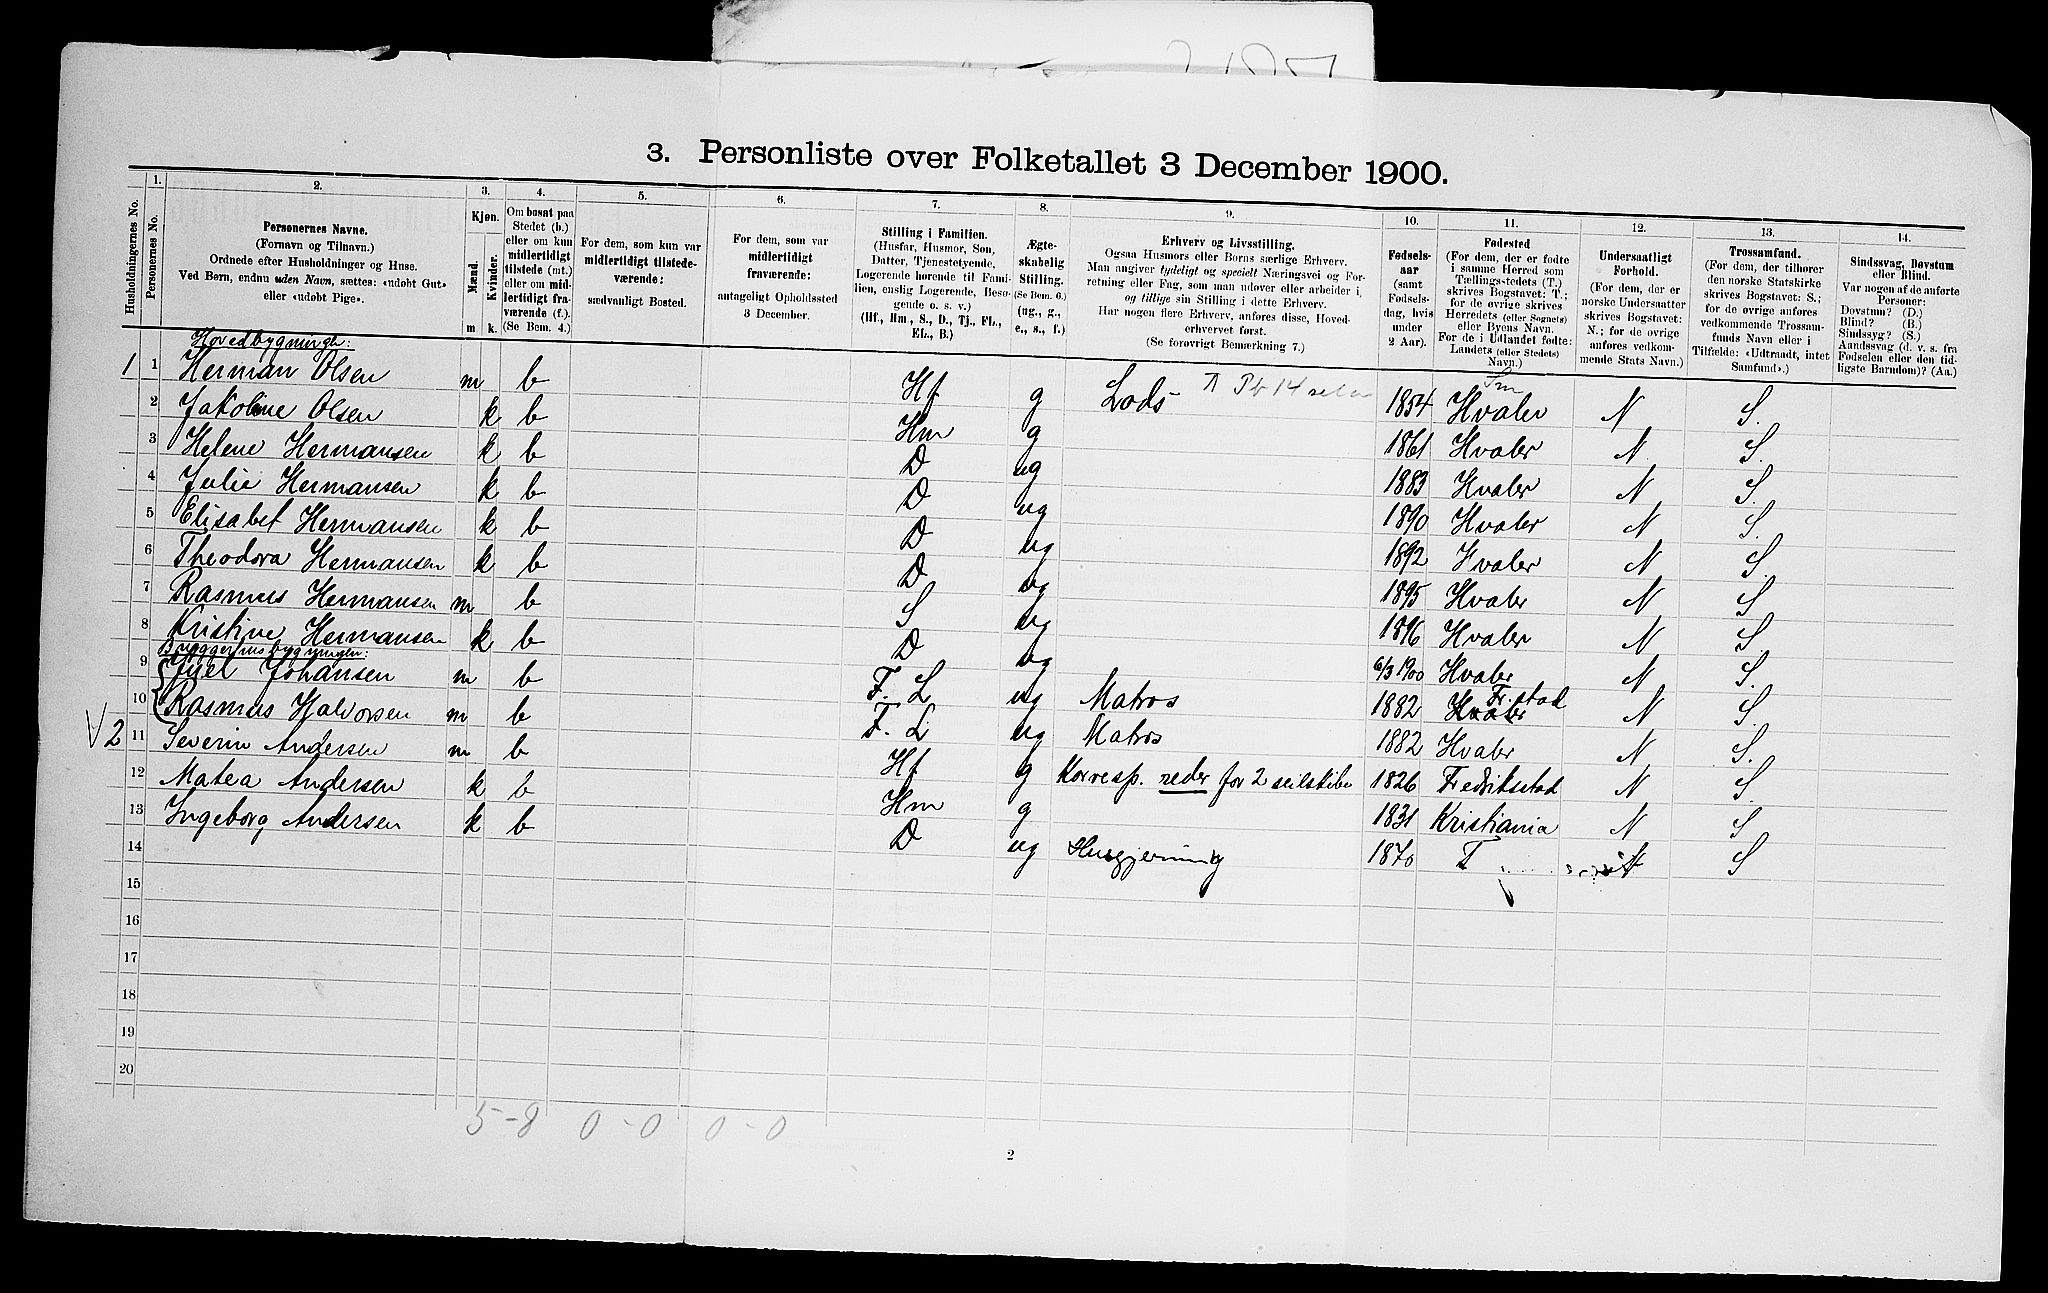 3. Personliste over Folketallet 3 December 1900.
Husholdningernes No.
1. Personernes No.
2. Personernes Navne. (Fornavn og Tilnavn.) Ordnede efter Husholdninger og Huse. Ved Børn, endnu uden Navn, sættes: «udøbt Gut» eller «udøbt Pige».
3. Kjøn. Mænd. m Kvinder. k.
4. Om bosat paa Stedet (b.) eller om kun midlertidigt tilstede (mt.) eller om midlertidigt fraværende (f.). (Se Bem. 4.)
5. For dem, som kun var midlertidigt tilstedeværende: sædvanligt Bosted.
6. For dem, som var midlertidigt fraværende: antageligt Opholdssted 3 December.
7. Stilling i Familien. (Husfar, Husmor, Søn, Datter, Tjenestetyende, Logerende hørende til Familien, enslig Logerende, Besøgende o. s. v.) (Hf., Hm., S., D., Tj., FL., EL., B.)
8. Ægteskabelig Stilling. (Se Bem. 6.) (ug., g., e., s., f.)
9. Erhverv og Livsstilling. Ogsaa Husmors eller Børns særlige Erhverv. Man angiver tydeligt og specielt Næringsvei og Forretning eller Fag, som man udøver eller arbeider i, og tillige sin Stilling i dette Erhverv. Har nogen flere Erhverv, anføres disse, Hovederhvervet først. (Se forøvrigt Bemærkning 7.)
10. Fødselsaar (samt Fødselsdag, hvis under 2 Aar).
11. Fødested (For dem, der er fødte i samme Herred som Tællingsstedets (T.) skrives Bogstavet: T.; for de øvrige skrives Herredets (eller Sognets) eller Byens Navn. For de i Udlandet fødte: Landets (eller Stedets) Navn.)
12. Undersaatligt Forhold. (For dem, der er norske Undersaatter skrives Bogstavet: N.; for de øvrige anføres vedkommende Stats Navn.)
13. Trossamfund. (For dem, der tilhører den norske Statskirke skrives Bogstavet: S.; for de øvrige anføres vedkommende Trossamfunds Navn eller i Tilfælde: «Udtraadt, intet Samfund».)
14. Sindssvag, Døvstum eller Blind. Var nogen af de anførte Personer: Døvstum? (D.) Blind? (B.) Sindssyg? (S.) Aandssvag (d. v. s. fra Fødselen eller den tidligste Barndom)? (Aa.)
Hovedbygningen:
1 1 Herman Olsen m b Hf g Lods 1854 Hvaler N S.
2 Jakobine Olsen k b Hm g 1861 Hvaler N S.
3 Helene Hermansen k b D ug 1883 Hvaler N S.
4 Julie Hermansen k b D ug 1890 Hvaler N S.
5 Elisabet Hermansen k b D ug 1892 Hvaler N S
6 Theodora Hermansen k b D ug 1895 Hvaler N S
7 Rasmus Hermansen m b S ug 1896 Hvaler N S
8 Kristine Hermansen k b D ug 6/3 1900 Hvaler N S.
Bryggerhusbygningen:
9 Juel Johansen m b F. L ug Matros 1882 Hvaler Fr.stad N S.
10 Rasmus Halvorsen m b F. L ug Matros 1882 Hvaler N S.
V 2 11 Severin Andersen m b Hf g Korresp. reder for 2 seilskibe 1826 Fredrikstad N S
12 Matea Andersen k b Hm g 1831 Kristiania N S
13 Ingeborg Andersen k b D ug Husgjerning 1870 T N S
14
15
16
17
18
19
20
5-8 0-0 0-0
2